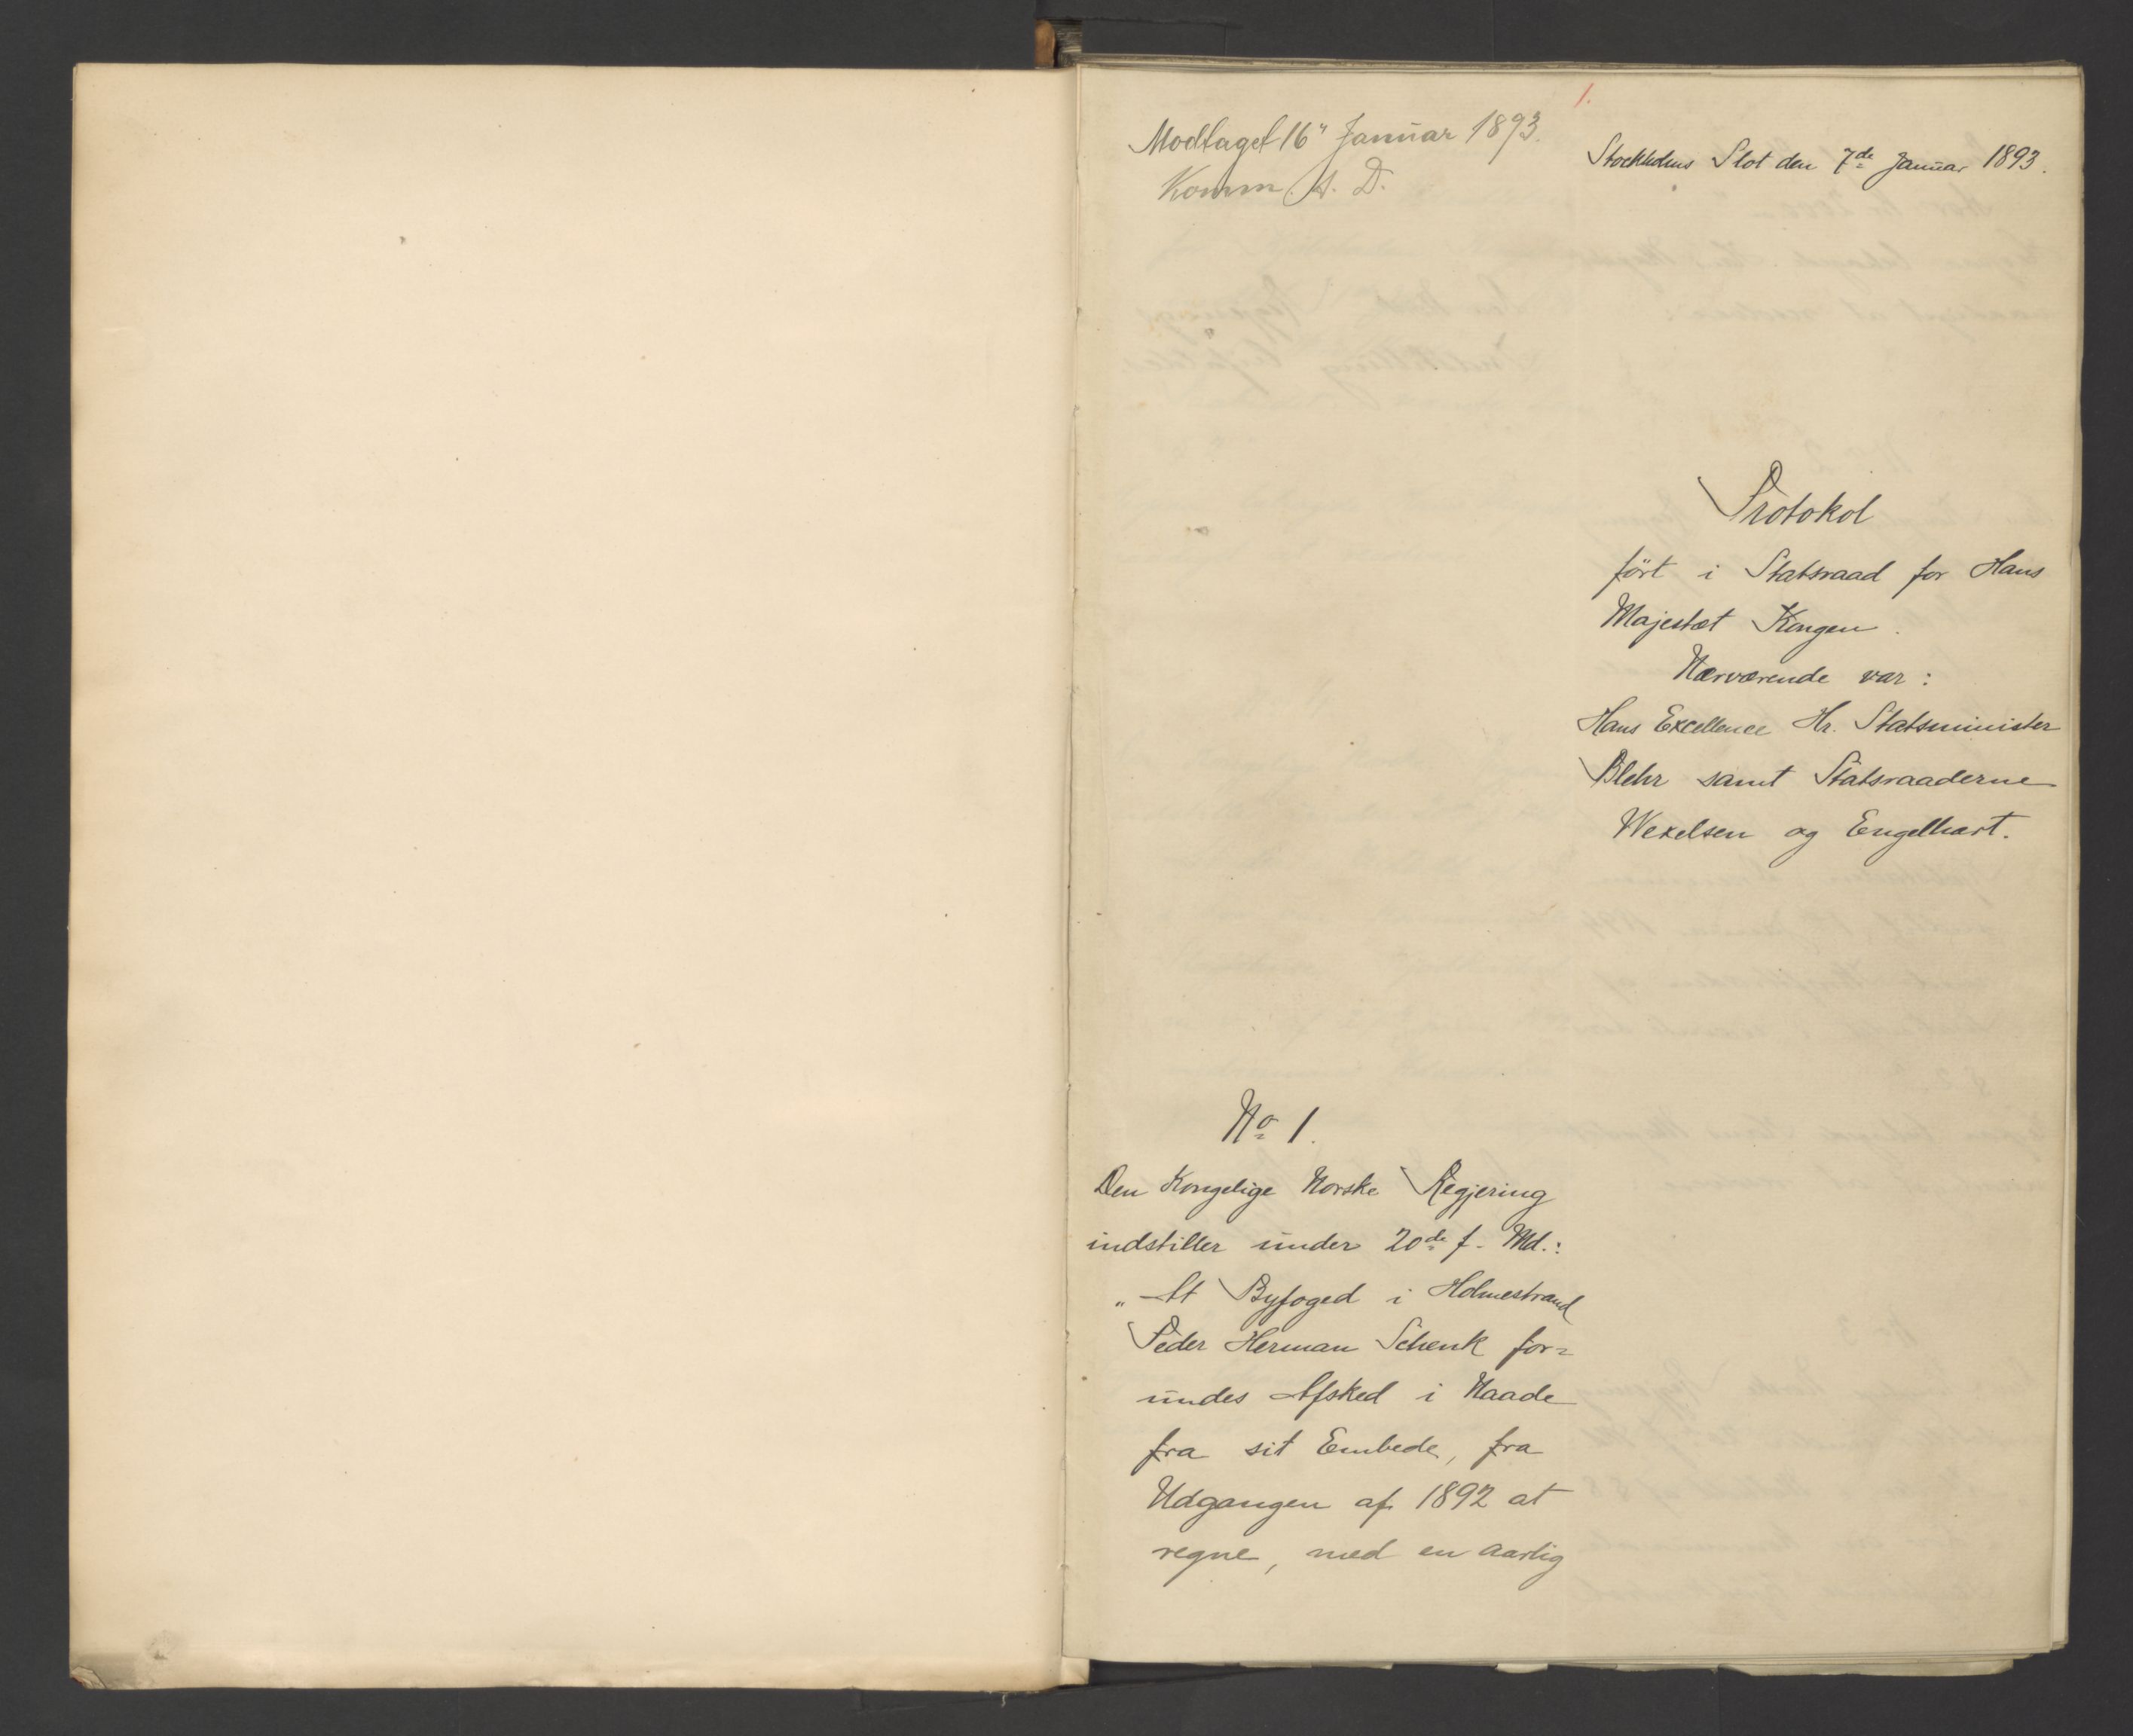 1.
Modtaget 16" Januar 1893.
Komm. A. D.
Stockholms Slot den 7de Januar 1893.
Protokol
ført i Statsraad for Hans
Majestæt Kongen.
Nærværende var:
Hans Excellence Hr. Statsminister
Blehr samt Statsraaderne
Wexelsen og Engelhart.
No 1.
Den Kongelige Norske Regjering
indstiller under 20de f. Md.:
"At Byfoged i Holmestrand
Peder Herman Schenk for=
undes Afsked i Naade
fra sit Embede, fra
Udgangen af 1892 at
regne, med en aarlig